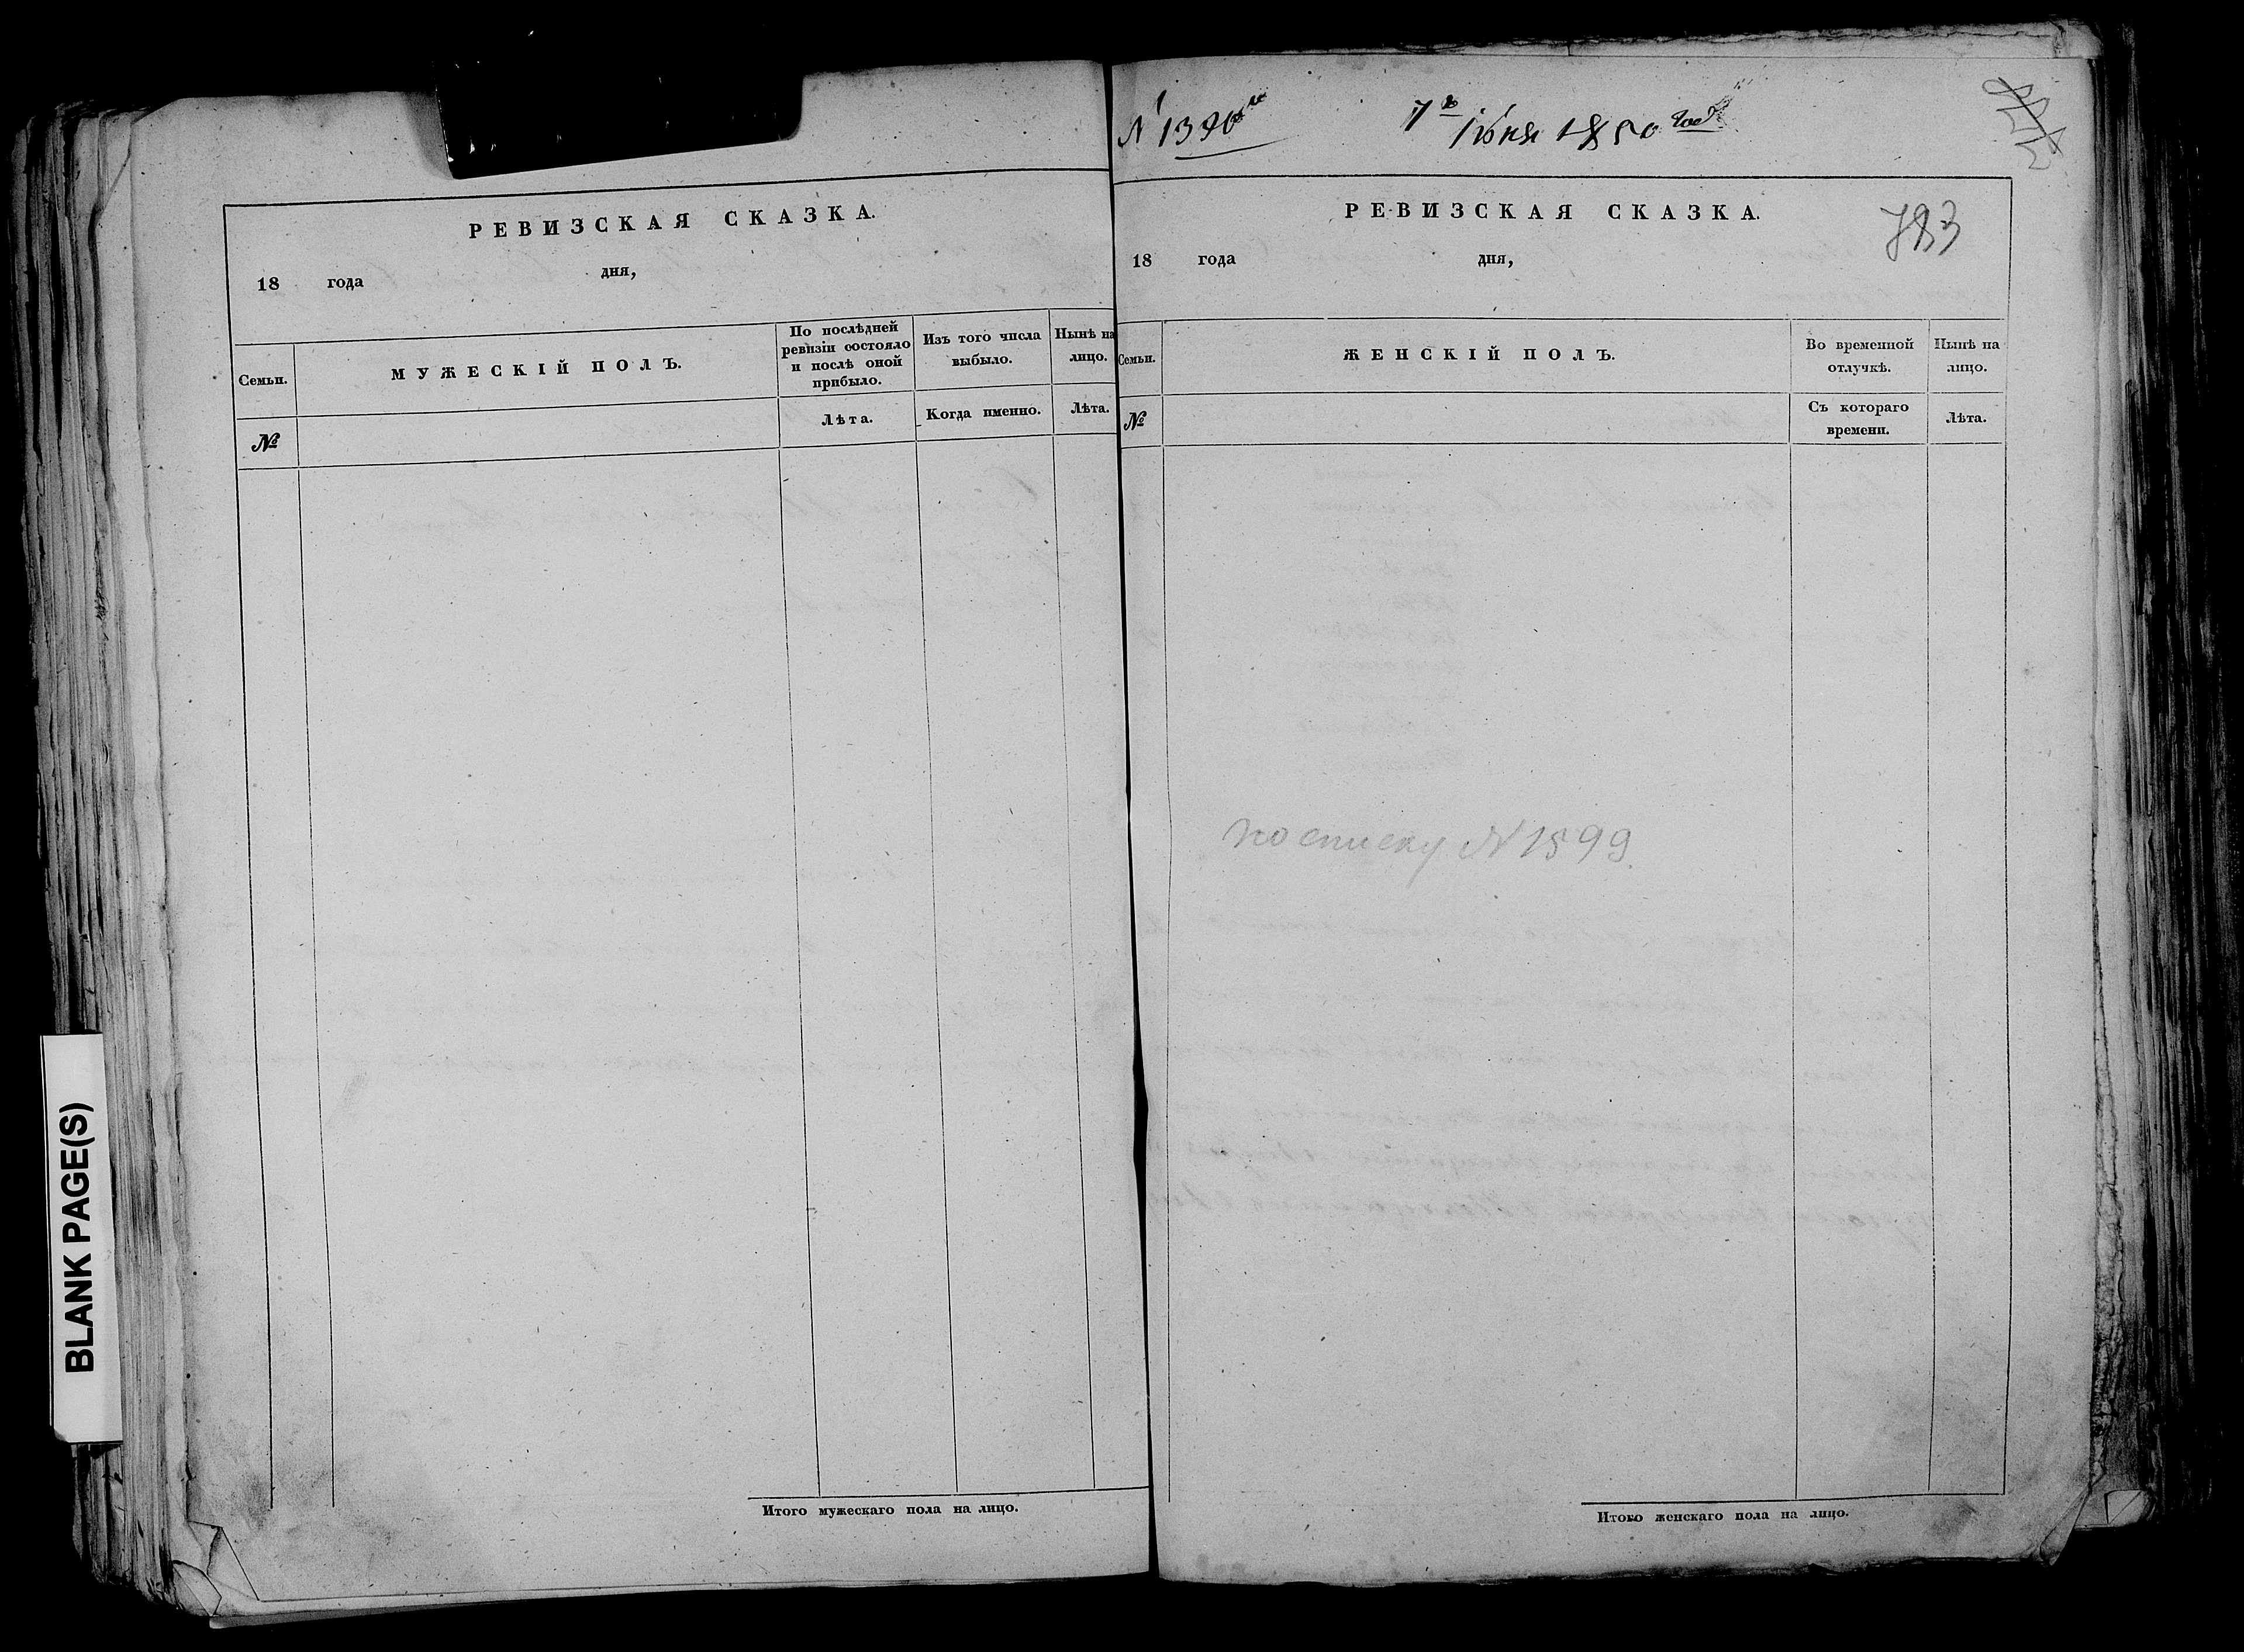 РЕВИЗСКАЯ СКАЗКА.
18 года дня,
Семьи. МУЖЕСКІЙ ПОЛЪ. По послѣдней ревизіи состояло и послѣ оной прибыло. Изъ того числа выбыло. Нынѣ на лицо.
№ Лѣта. Когда именно. Лѣта.
Итого мужескаго пола на лицо.
N 1390
7го Іюня 1850 года
783
РЕВИЗСКАЯ СКАЗКА.
18 года дня,
Семьи. ЖЕНСКІЙ ПОЛЪ. Во временной отлучкѣ. Нынѣ на лицо.
№ Съ котораго времени. Лѣта.
по списку N 1599.
Итого женскаго пола на лицо.
BLANK PAGE(S)